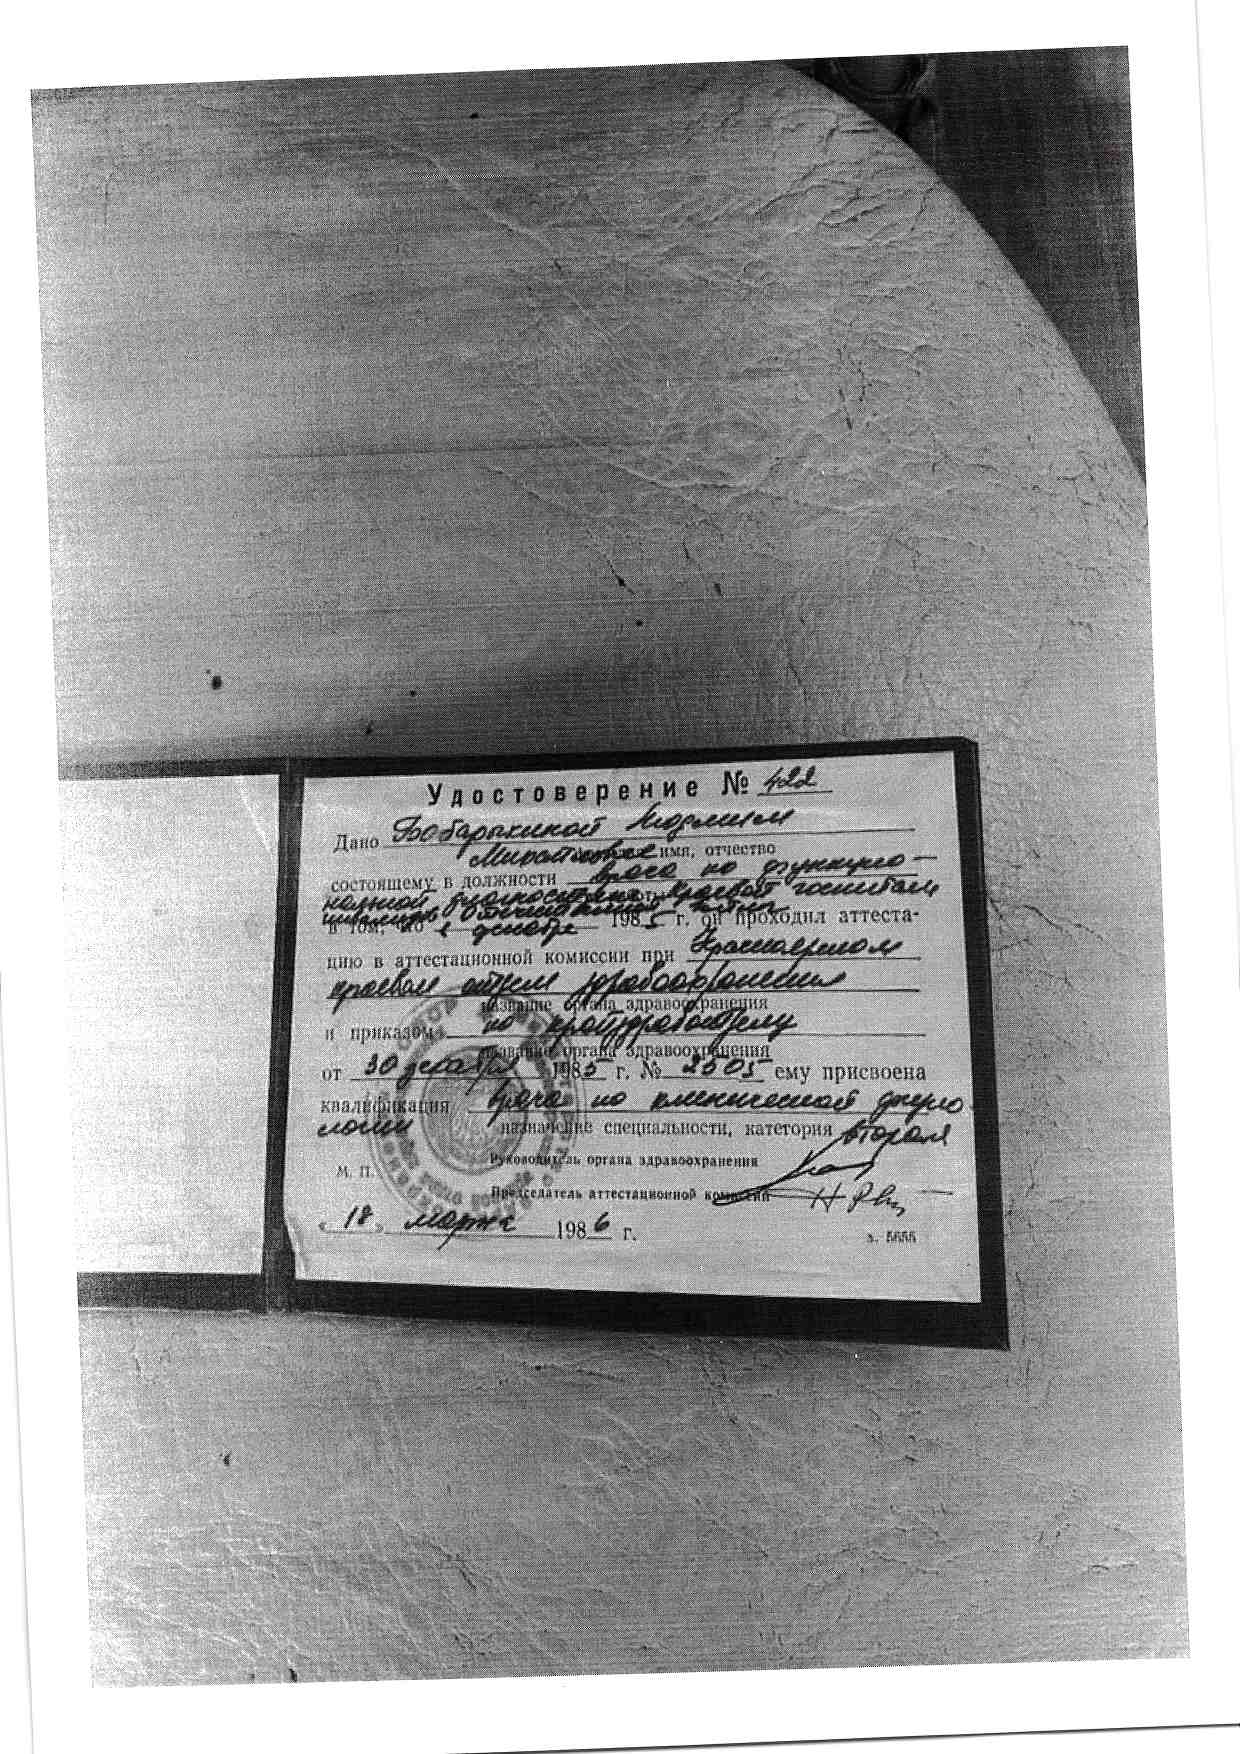 Удостоверение № 422
Дано Бобарыкиной Людмиле
имя, отчество
состоящему в должности врача по функцио-
нальной диагностике Краевой госпиталь
инвалидов Отечественной
в том, что в декабре 1985 г. он проходил аттеста-
цию в аттестационной комиссии при Красноярском
краевом отделе здравоохранения
название органа здравоохранения
и приказом по крайздравотделу
название органа здравоохранения
от 30 декабря 1985 г. № 2505 ему присвоена
квалификация врача по клинической
назначение специальности, категория вторая
Руководитель органа здравоохранения
М. П.
Председатель аттестационной комиссии
« 18 » марта 1986 г.
з. 5655